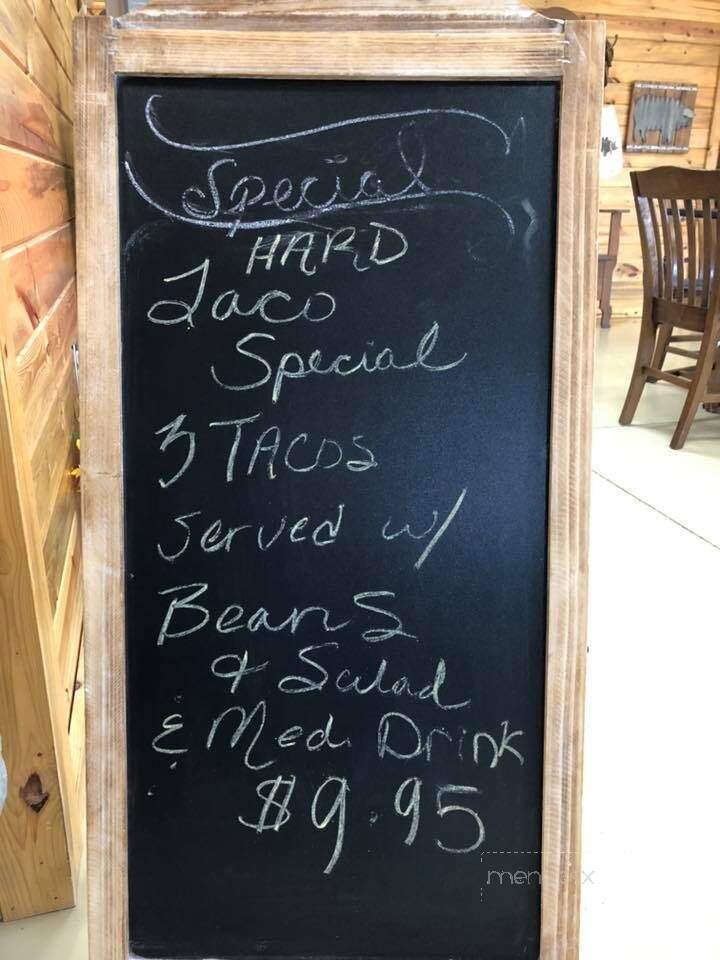 Special
HARD
Taco
Special
3 TACOS
Served w/
Beans
& Salad
& Med. Drink
$9.95